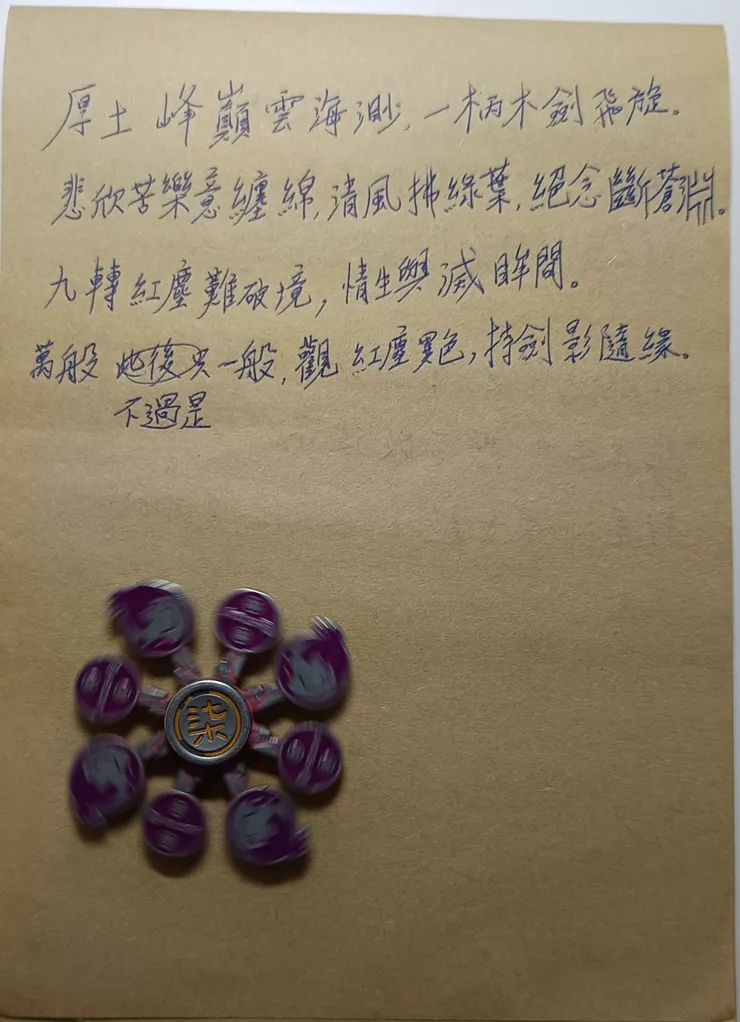 厚土峰巔雲海渺,一柄木劍飛旋。
悲欣苦樂意纏綿,清風拂綠葉,絕念斷蒼淵。
九轉紅塵難破境,情生與滅眸間。
萬般 此後 一般,觀紅塵異色,持劍影隨緣。
不過是
柒